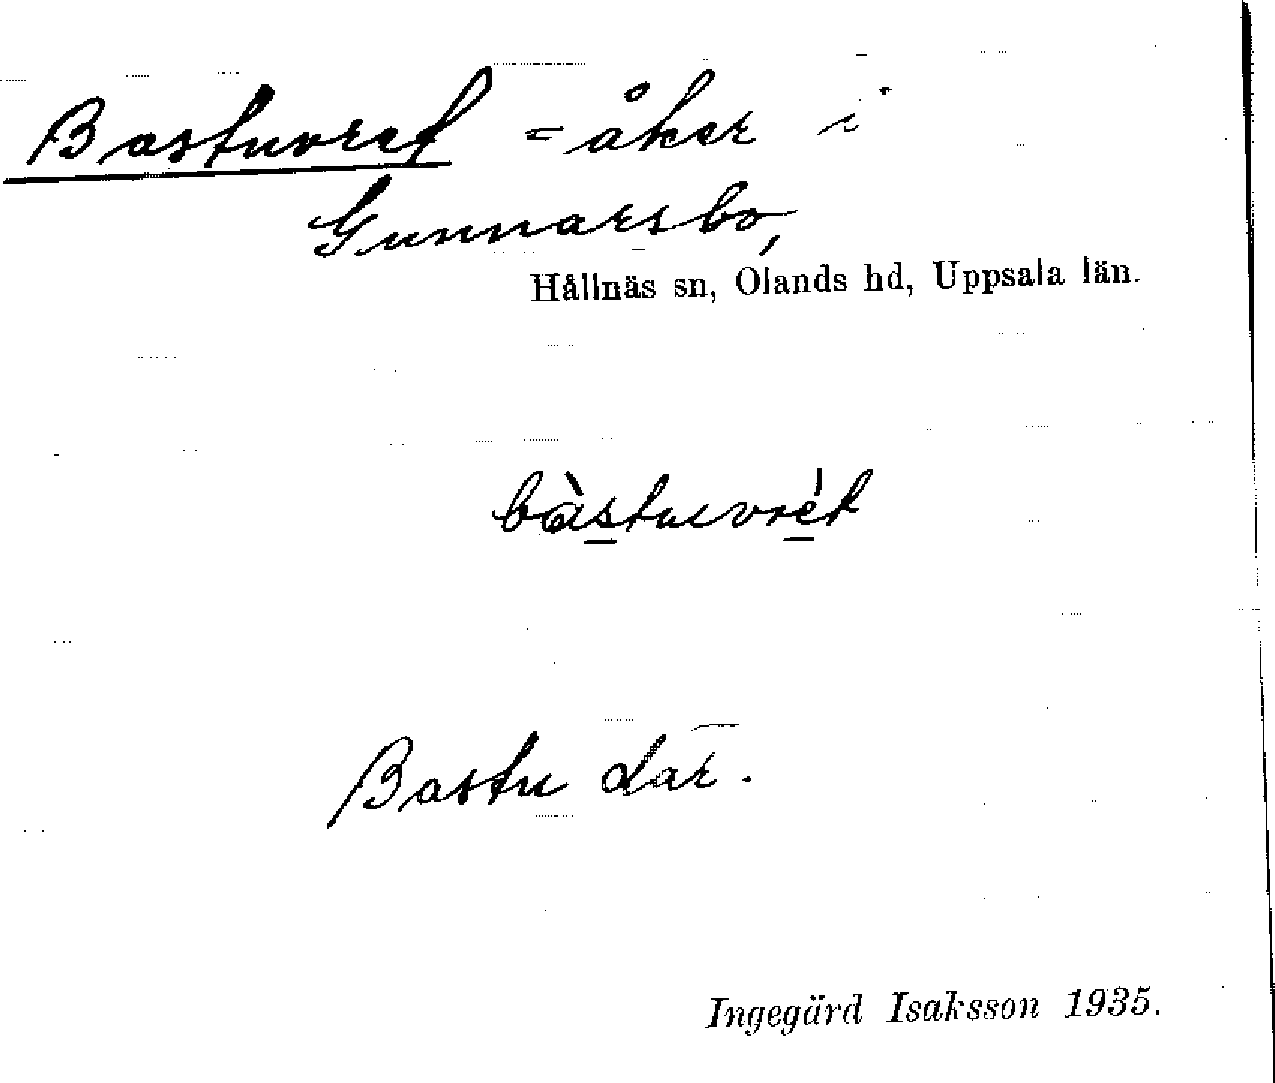 Bastuvret = åker i
Gunnarsbo,
Hållnäs sn, Olands hd, Uppsala län.
bàstuvrét
Bastu där.
Ingegärd Isaksson 1935.